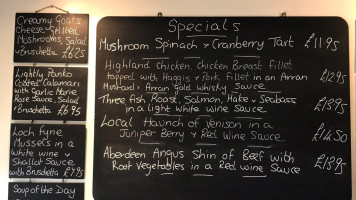 Creamy Goats
Cheese + Grilled
Mushrooms, Salad
+ Bruschetta £6.75
Lightly Panko
Coated Calamari
with Garlic Marie
Rose Sauce, Salad
+ Bruschetta £6.95
Loch Fyne
Mussels in a
white wine +
Shallot Sauce
with Bruschetta £7.95
Soup of the Day
Specials
Mushroom Spinach + Cranberry Tart £11.95
Highland Chicken, Chicken Breast fillet
topped with Haggis + Pork fillet in an Arran
Mustard + Arran Gold whisky Sauce £12.95
Three fish Roast, Salmon, Hake + Seabass
in a light white wine Sauce £13.95
Local Haunch of venison in a
Juniper Berry + Red Wine Sauce £14.50
Aberdeen Angus Shin of Beef with
Root Vegetables in a Red wine Sauce £13.95